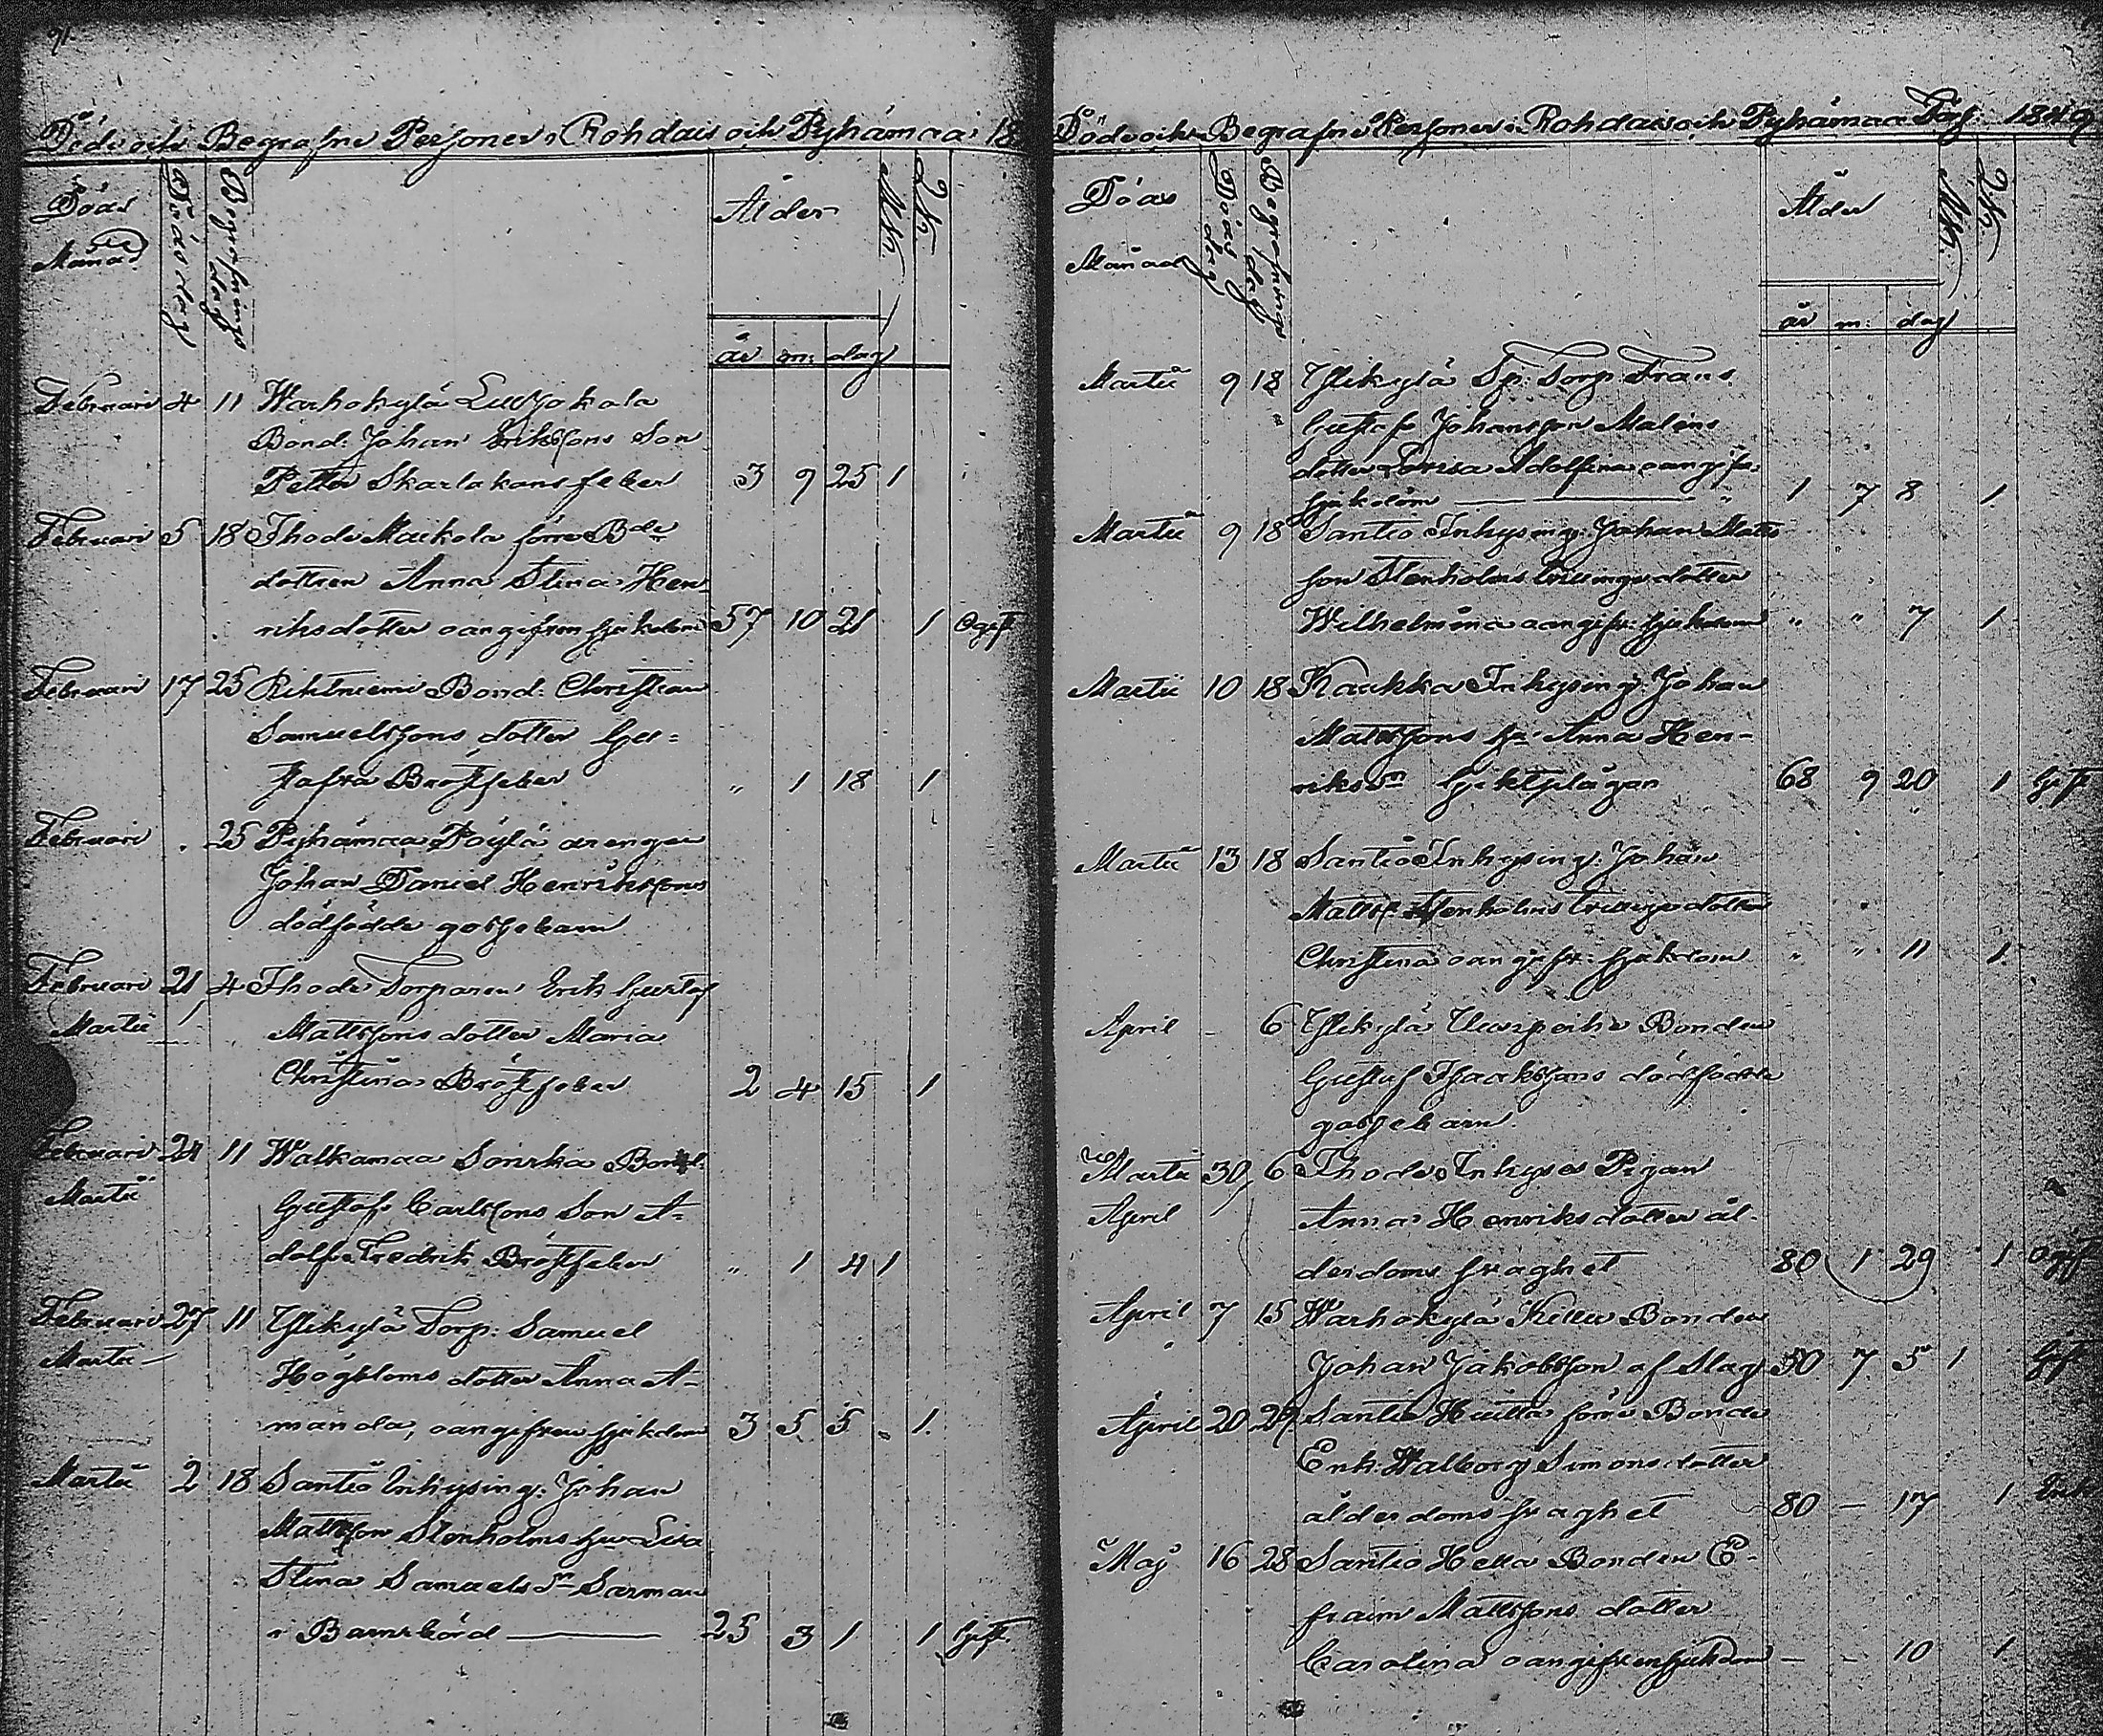 91.
Döde och Begrafne Personer i Rohdais och Pyhämaa 18
Döds
Månad
Döds dag
Begrafnings dag
Ålder
Mk.
Qk.
år m: dag
Februari 4 11 Warhokylä
Bond. Johan Erikssons Son
Petter Skarlakans feber 3 9 25 1
Februari 5 18 Thode Maikola förre Bde
dottren Anna Stina Hen-
riksdotter oangifven sjukdom 57 10 21 1 Ogift
Februari 17 25 Rihtniemi Bond: Christian
Samuelssons dotter Gu=
stafva Bröstfeber " 1 18 1
Februari . 25 Pyhämaa Pöylä drengen
Johan Daniel Henrikssons
dödfödde gossebarn
Februari 21 4 Thode Torparen Erik Gustaf
Martii Mattssons dotter Maria
Christina Bröstfeber 2 4 15 1
Februari 24 11 Walkamaa Sonska Bond:
Martii Gustaf Carlssons Son A-
dolf Fredrik Bröstfeber " 1 4 1
Februari 27 11 Ylikylä Torp: Samuel
Martii Högbloms dotter Anna A-
manda, oangifven sjukdom 3 5 5 " 1.
Martii 2 18 Santio Inhysing: Johan
Mattsson Stenholms hu Lisa
Stina Samuels Dr Sarman
i Barnsbörd 25 3 1 1 Gift.
Döde och Begrafne Personer i Rohdais och Pyhämaa Förs: 1849
Döds
Månad
Döds dag
Begrafnings dag
Ålder
Mk.
Qk.
år m: dag
Martii 9 18 Ylikylä Sp: Torp: Frans
Gustaf Johansson Malins
dotter Lovisa Adolfina oangifv:
sjukdom 1 7 8 1
Martii 9 18 Santio Inhysing: Johan Matts
son Stenholms trillinge dotter
Wilhelmina oangifv: sjukdom " " 7 1
Martii 10 18 Kaukka Inhysing: Johan
Mattssons hu Anna Hen-
riks Dr Giktplågor 68 9 20 1 Gift
Martii 13 18 Santio Inhysing: Johan
Matts: Stenholms trillinge dotter
Christina oangifv: sjukdom " " 11 1
April - 6 Ylikylä Uusipoike Bonden
Gustaf Isaakssons dödfödde
gossebarn.
Martii 30 6 Thode Inhyses Pigan
April Anna Henriksdotter ål-
derdoms svaghet 80 1 29 1 Ogift
April 7 15 Warhokylä Killu Bonden
Johan Jakobsson af Slag 50 7 5 1 Gift
April 20 29 Santio Huitta förre Bonde
Enk: Walborg Simonsdotter
ålderdoms svaghet 80 — 17 1 Enka
Maj 16 28 Santio Hella Bonden E-
fraim Mattssons dotter
Carolina oangifven sjukdom — — 10 1